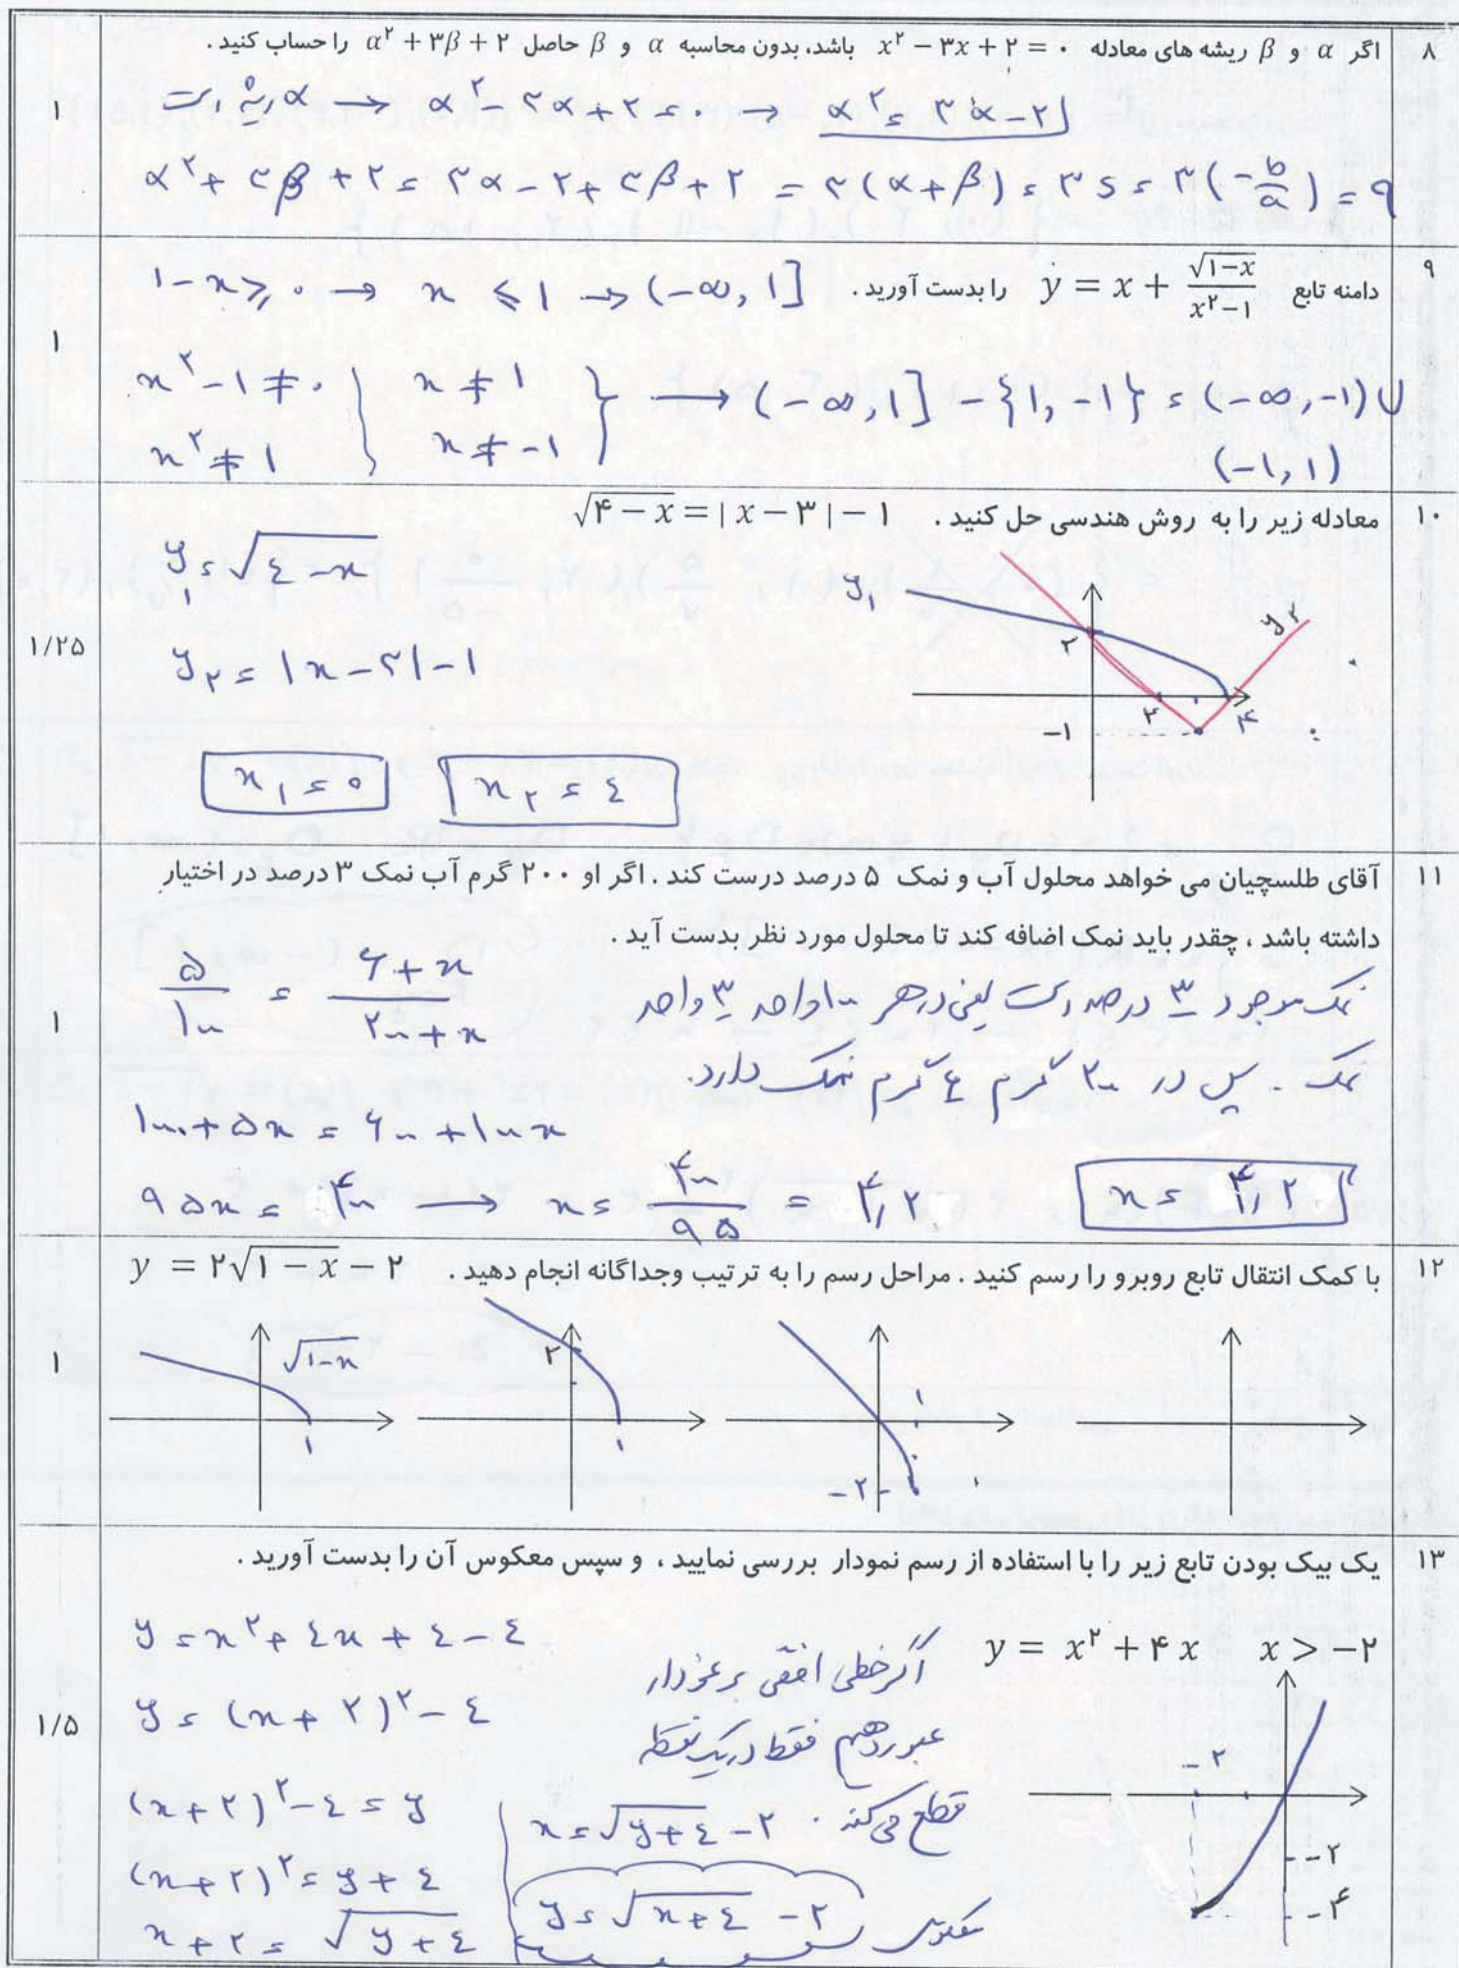 ۸ اگر α و β ریشه های معادله x² − ۳x + ۲ = ۰ باشد، بدون محاسبه α و β حاصل α² + ۳β + ۲ را حساب کنید .
۱
α ریشه است → α² − ۳α + ۲ = ۰ → α² = ۳α − ۲
α² + ۳β + ۲ = ۳α − ۲ + ۳β + ۲ = ۳(α + β) = ۳S = ۳(−b/a) = ۹
۹ دامنه تابع y = x + √(۱−x) / (x²−۱) را بدست آورید .
۱
۱ − x ≥ ۰ → x ≤ ۱ → (−∞, ۱]
x² − ۱ ≠ ۰ x ≠ ۱ → (−∞, ۱] − {۱, −۱} = (−∞, −۱) ∪
x² ≠ ۱ x ≠ −۱ (−۱, ۱)
۱۰ معادله زیر را به روش هندسی حل کنید . √(۴ − x) = | x − ۳ | − ۱
۱/۲۵
y₁ = √(٤ − x)
y₂ = |x − ۳| − ۱
y₁ y₂
۲ ۲ ۴
−۱
x₁ = ۰ x₂ = ٤
۱۱ آقای طلسچیان می خواهد محلول آب و نمک ۵ درصد درست کند . اگر او ۲۰۰ گرم آب نمک ۳ درصد در اختیار
داشته باشد ، چقدر باید نمک اضافه کند تا محلول مورد نظر بدست آید .
۱
۵/۱۰۰ = (۶ + x)/(۲۰۰ + x)
نمک موجود ۳ درصد است یعنی در هر ۱۰۰ واحد ۳ واحد
نمک . پس در ۲۰۰ گرم ۶ گرم نمک دارد.
۱۰۰۰ + ۵x = ۶۰۰ + ۱۰۰x
۹۵x = ۴۰۰ → x = ۴۰۰/۹۵ = ۴,۲ x = ۴,۲
۱۲ با کمک انتقال تابع روبرو را رسم کنید . مراحل رسم را به ترتیب وجداگانه انجام دهید . y = ۲√(۱ − x) − ۲
۱
√(۱−x)
۱
۲
۱
۱
−۲
۱۳ یک بیک بودن تابع زیر را با استفاده از رسم نمودار بررسی نمایید ، و سپس معکوس آن را بدست آورید .
y = x² + ۴x x > −۲
۱/۵
y = x² + ٤x + ٤ − ٤
y = (x + ۲)² − ٤
(x + ۲)² − ٤ = y
(x + ۲)² = y + ٤
x + ۲ = √(y + ٤)
اگر خطی افقی بر نمودار
عبور دهیم فقط در یک نقطه
قطع می کند .
x = √(y + ٤) − ۲
معکوس y = √(x + ٤) − ۲
−۲
−۲
−۴